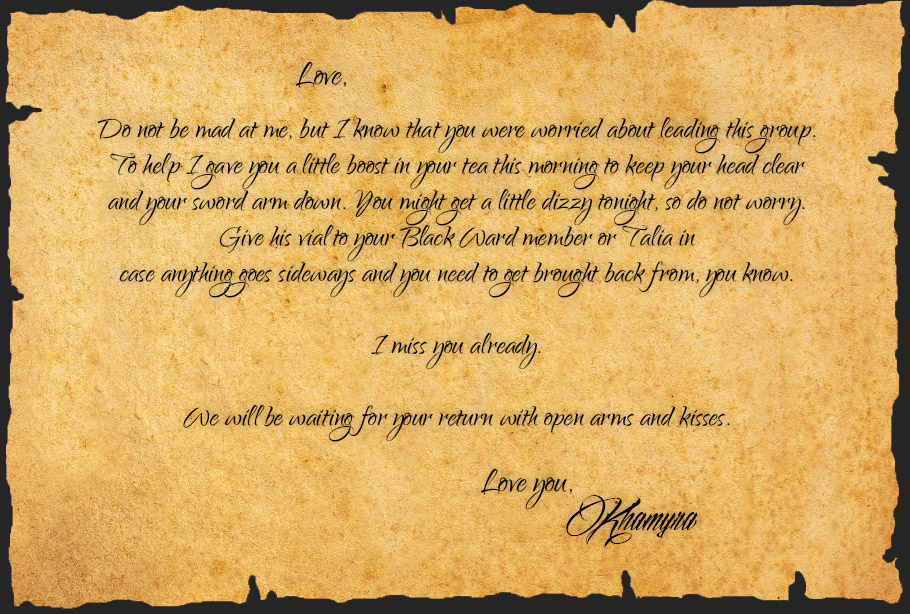 Love,
Do not be mad at me, but I know that you were worried about leading this group.
To help I gave you a little boost in your tea this morning to keep your head clear
and your sword arm down. You might get a little dizzy tonight, so do not worry.
Give his vial to your Black Ward member or Talia in
case anything goes sideways and you need to get brought back from, you know.
I miss you already.
We will be waiting for your return with open arms and kisses.
Love you,
Khamyra